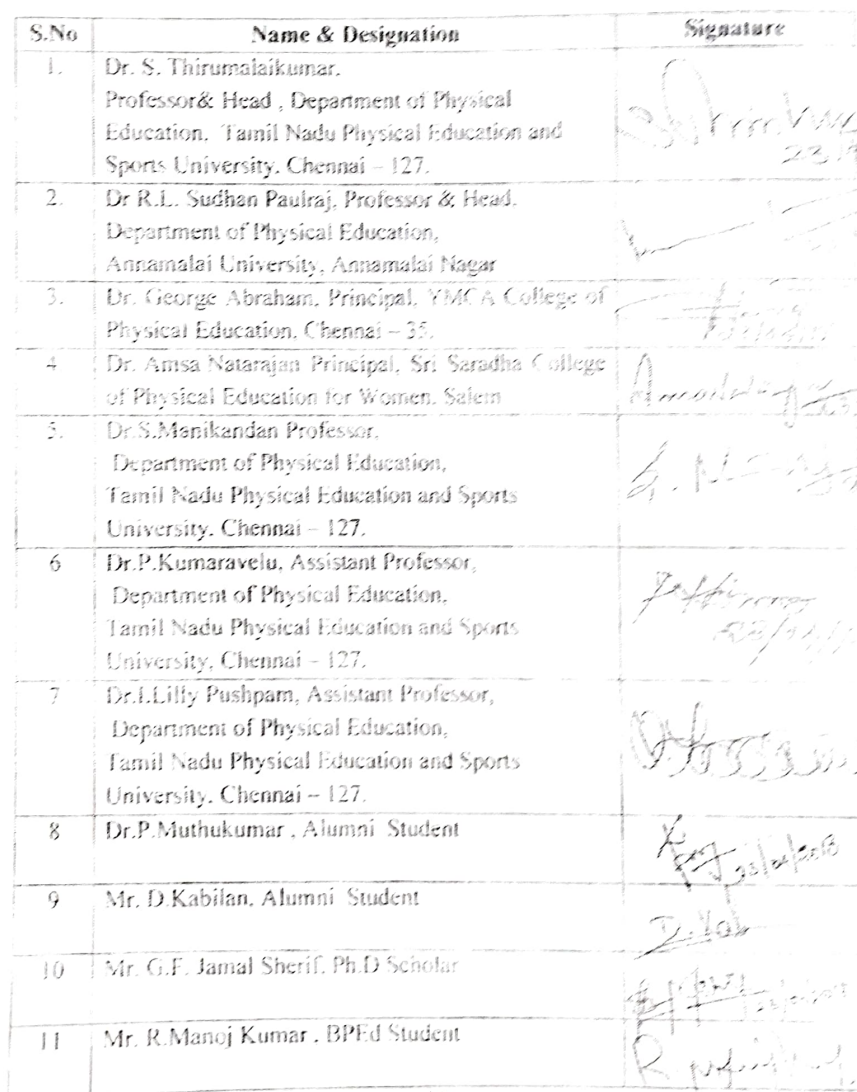 S.No Name & Designation Signature
1. Dr. S. Thirumalaikumar,
Professor& Head , Department of Physical
Education, Tamil Nadu Physical Education and
Sports University, Chennai – 127.
2. Dr R.L. Sudhan Paulraj, Professor & Head,
Department of Physical Education,
Annamalai University, Annamalai Nagar
3. Dr. George Abraham, Principal, YMCA College of
Physical Education, Chennai – 35.
4 Dr. Amsa Natarajan Principal, Sri Saradha College
of Physical Education for Women, Salem
5. Dr.S.Manikandan Professor,
Department of Physical Education,
Tamil Nadu Physical Education and Sports
University, Chennai – 127.
6 Dr.P.Kumaravelu, Assistant Professor,
Department of Physical Education,
Tamil Nadu Physical Education and Sports
University, Chennai – 127.
7 Dr.I.Lilly Pushpam, Assistant Professor,
Department of Physical Education,
Tamil Nadu Physical Education and Sports
University, Chennai – 127.
8 Dr.P.Muthukumar , Alumni Student
9 Mr. D.Kabilan, Alumni Student
10 Mr. G.F. Jamal Sherif, Ph.D Scholar
11 Mr. R.Manoj Kumar , BPEd Student